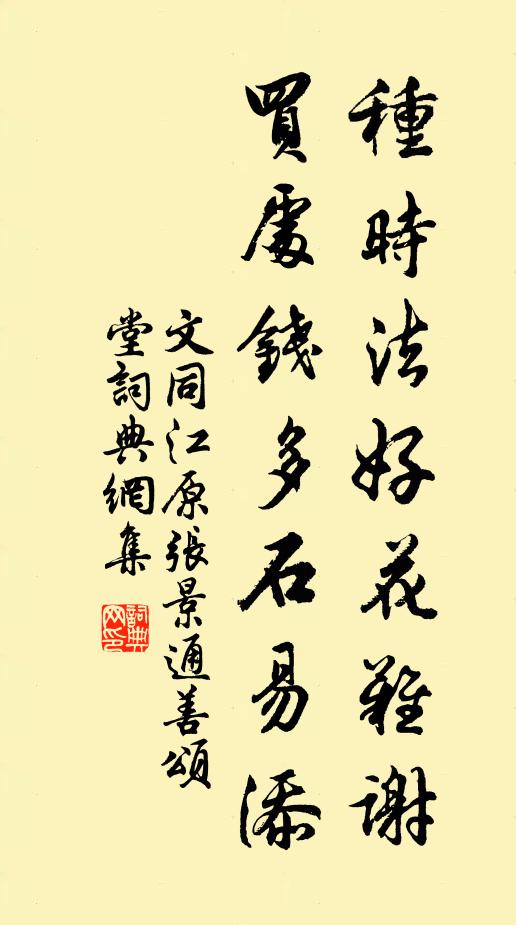 種時法好花難謝
買處錢多石易添
文同江原張景通善頌
堂詞典網集
詞典網印